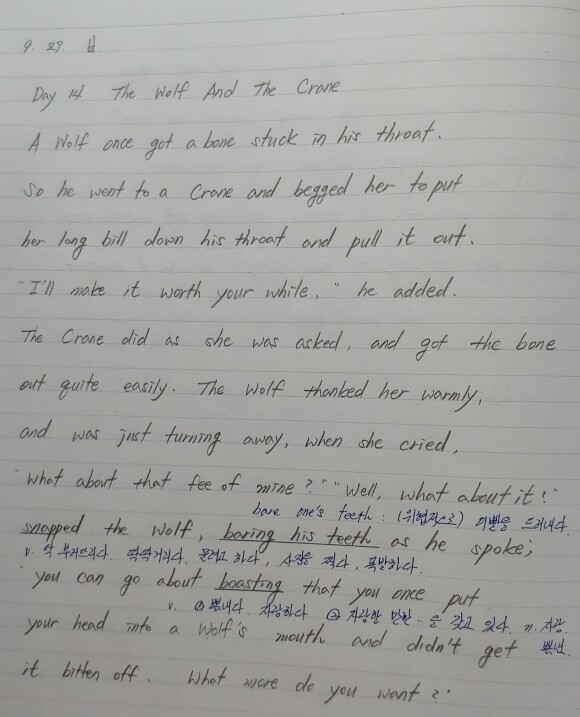 9. 29. 남
Day 14 The Wolf And The Crane
A Wolf once got a bone stuck in his throat.
So he went to a Crane and begged her to put
her long bill down his throat and pull it out.
"I'll make it worth your while," he added.
The Crane did as she was asked, and got the bone
out quite easily. The Wolf thanked her warmly,
and was just turning away, when she cried,
"What about that fee of mine?" "Well, what about it!"
bare one's teeth : (위협적으로) 이빨을 드러내다.
snapped the Wolf, baring his teeth as he spoke;
v. 딱 부러뜨리다. 딱딱거리다. 물려고 하다, 사진을 찍다, 폭발하다.
"you can go about boasting that you once put
v. ① 뽐내다. 자랑하다 ② 자랑할 만한 ··을 갖고 있다. n. 자랑
your head into a Wolf's mouth and didn't get
it bitten off. What more do you want?"